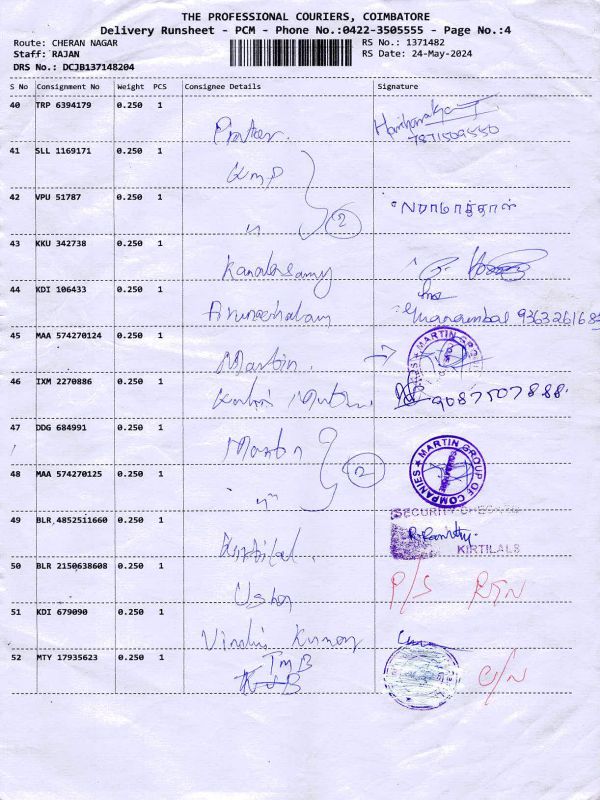 THE PROFESSIONAL COURIERS, COIMBATORE
Delivery Runsheet - PCM - Phone No.:0422-3505555 - Page No.:4
Route: CHERAN NAGAR RS No.: 1371482
Staff: RAJAN RS Date: 24-May-2024
DRS No.: DCJB137148204
S No Consignment No Weight PCS Consignee Details Signature
40 TRP 6394179 0.250 1
7871509550
41 SLL 1169171 0.250 1
42 VPU 51787 0.250 1
2
43 KKU 342738 0.250 1
Kandasamy
44 KDI 106433 0.250 1
Arunachalam
45 MAA 574270124 0.250 1
Martin.
46 IXM 2270886 0.250 1
9087507888.
47 DDG 684991 0.250 1
Martin
48 MAA 574270125 0.250 1
2
MARTIN GROUP OF COMPANIES
49 BLR 4852511660 0.250 1
SECURITY
KIRTILALS
Kirtilal.
50 BLR 2150638608 0.250 1
Usha
P/S RTN
51 KDI 679090 0.250 1
Kumar
52 MTY 17935623 0.250 1
TMB